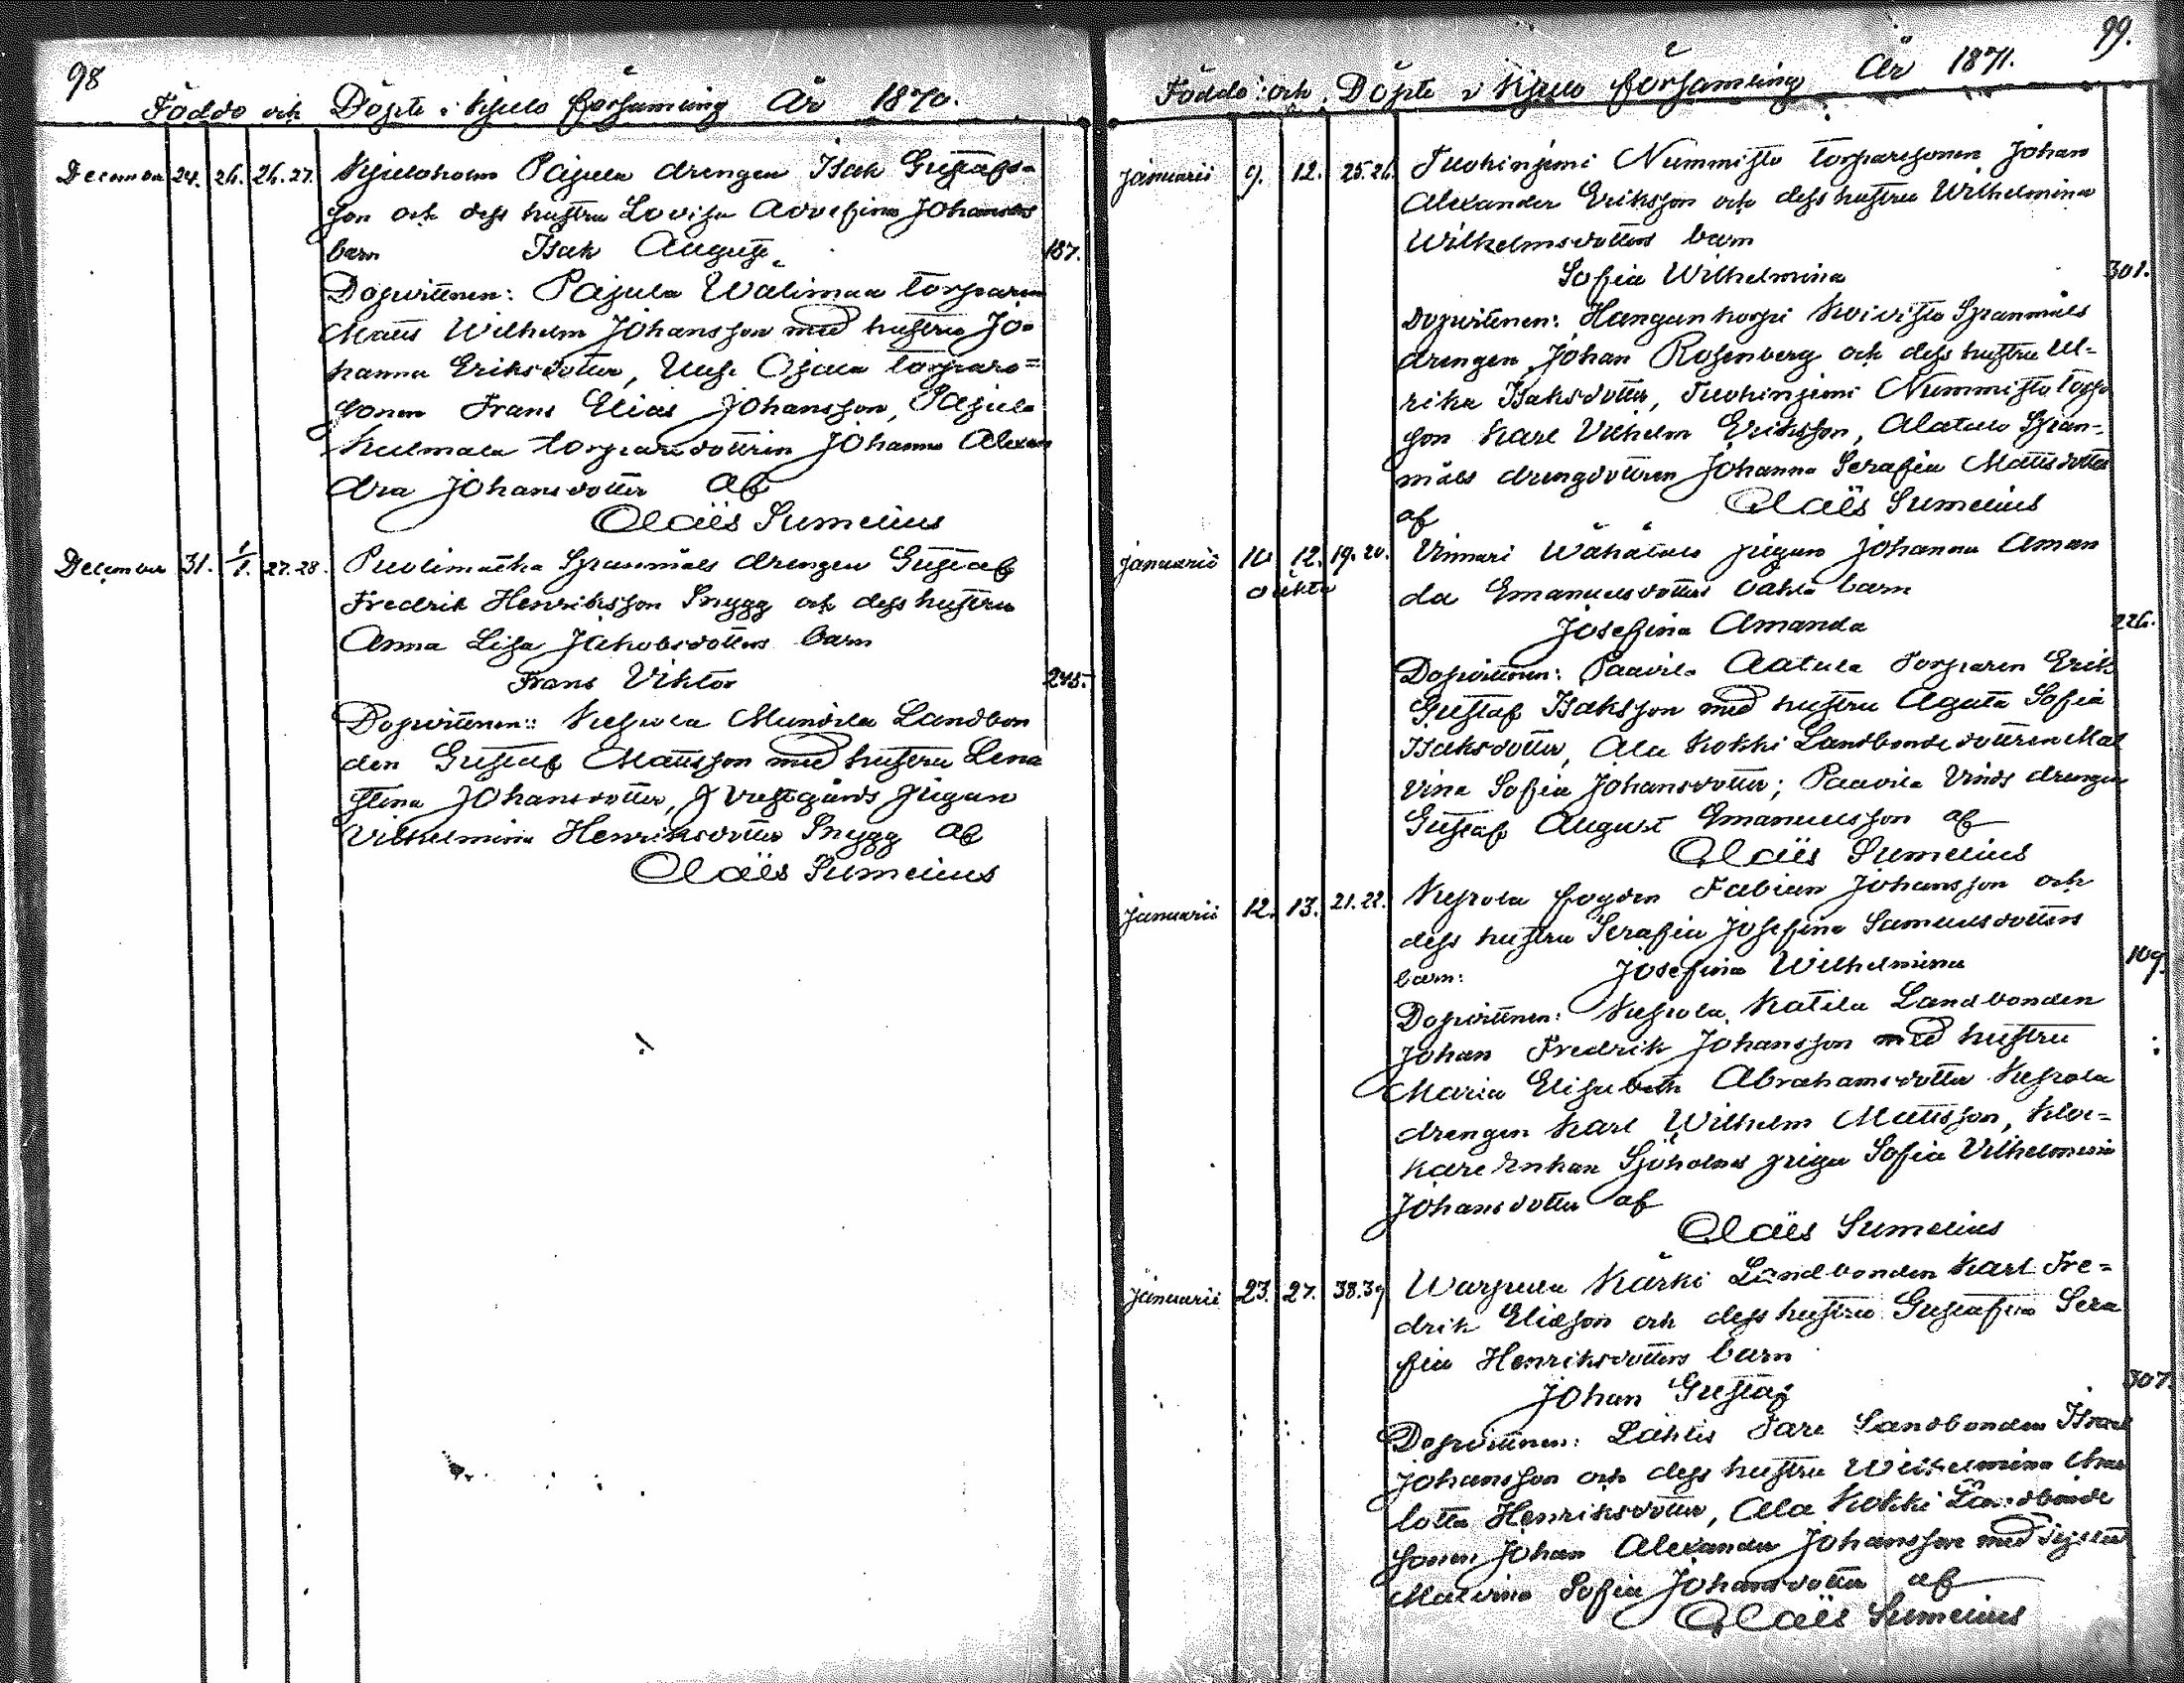 98
Födde och Döpte i Kjulo församling År 1870.
December 24. 26. 26. 27. Kjuloholm Pajula drengen Isak Gustafs-
son och dess hustru Lovisa Adolfina Johansdrs
barn Isak August 187.
Dopvittnen: Pajula Walimaa torparen
Matts Wilhelm Johansson med hustru Jo-
hanna Eriksdotter, Ojala torpare=
sonen Frans Elias Johansson, Pajula
Kulmala torparedottren Johanna Alexan
dra Johansdotter af
Claës Sumelius
December 31. 1/1. 27. 28. Puolimatka Spanmåls drengen Gustaf
Fredrik Henriksson Snygg och dess hustru
Anna Lisa Jakobsdotters barn
Frans Viktor 245.
Dopvittnen: Kepola Mundila Landbon
den Gustaf Mattsson med hustru Lena
Stina Johansdotter, prestgårds pigan
Vilhelmina Henriksdotter Snygg af
Claës Sumelius
99.
Födde och Döpte i Kjulo församling År 1871.
Januarii 9. 12. 25. 26. Tuohiniemi Nummisto torparesonen Johan
Alexander Eriksson och dess hustru Wilhelmina
Wilhelmsdotters barn
Sofia Wilhelmina 301.
Dopvittnen: Hangankorpi Koivisto Spanmåls
drengen Johan Rosenberg och dess hustru Ul-
rika Isaksdotter, Tuohiniemi Nummisto torp
son Karl Vilhelm Eriksson, Alatalo Span-
måls drengdottren Johanna Serafia Mattsdotter
af Claës Sumelius
Januarii 10. 12. 19. 20. Vinnari Wähätalo pigan Johanna Aman
oäkta da Emanuelsdotters oäkta barn
Josefina Amanda 226.
Dopvittnen: Paavila Aatula Torparen Erik
Gustaf Isaksson med hustru Agata Sofia
Isaksdotter, Ala Kokki Landbondedottren Mal
vina Sofia Johansdotter; Paavila Vinds drengen
Gustaf August Emanuelsson af
Claës Sumelius
Januarii 12. 13. 21. 22. Kepola fogden Fabian Johansson och
dess hustru Serafia Josefina Samuelsdotters
barn: Josefina Wilhelmina 109.
Dopvittnen: Kepola Katila Landbonden
Johan Fredrik Johansson med hustru
Maria Elisabeth Abrahamsdotter Kepola
drengen Karl Wilhelm Mattsson, Kloc-
kare Enkan Sjöholms piga Sofia Vilhelmina
Johansdotter af
Claës Sumelius
Januarii 23. 27. 38. 39 Warpula Kärki Landbonden Karl Fre=
drik Eliasson och dess hustru Gustafva Sera
fia Henriksdotters barn
Johan Gustaf 307.
Dopvittnen: Lähtis Tare Landbonden Isak
Johansson och dess hustru Wilhelmina Char
lotta Henriksdotter, Ala Kokki Landbonde
sonen Johan Alexander Johansson med syster
Malvina Sofia Johansdotter af
Claës Sumelius